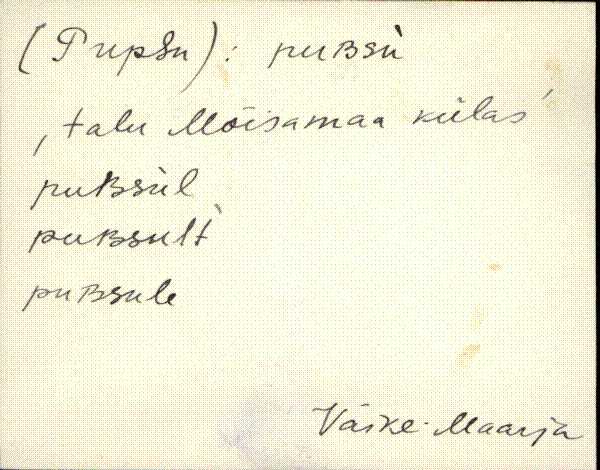 (Pupsu): puʙsù
‚ talu Mõisamaa külas ʼ
puʙsùl
puʙsult̀
puʙsule
Väike-Maarja